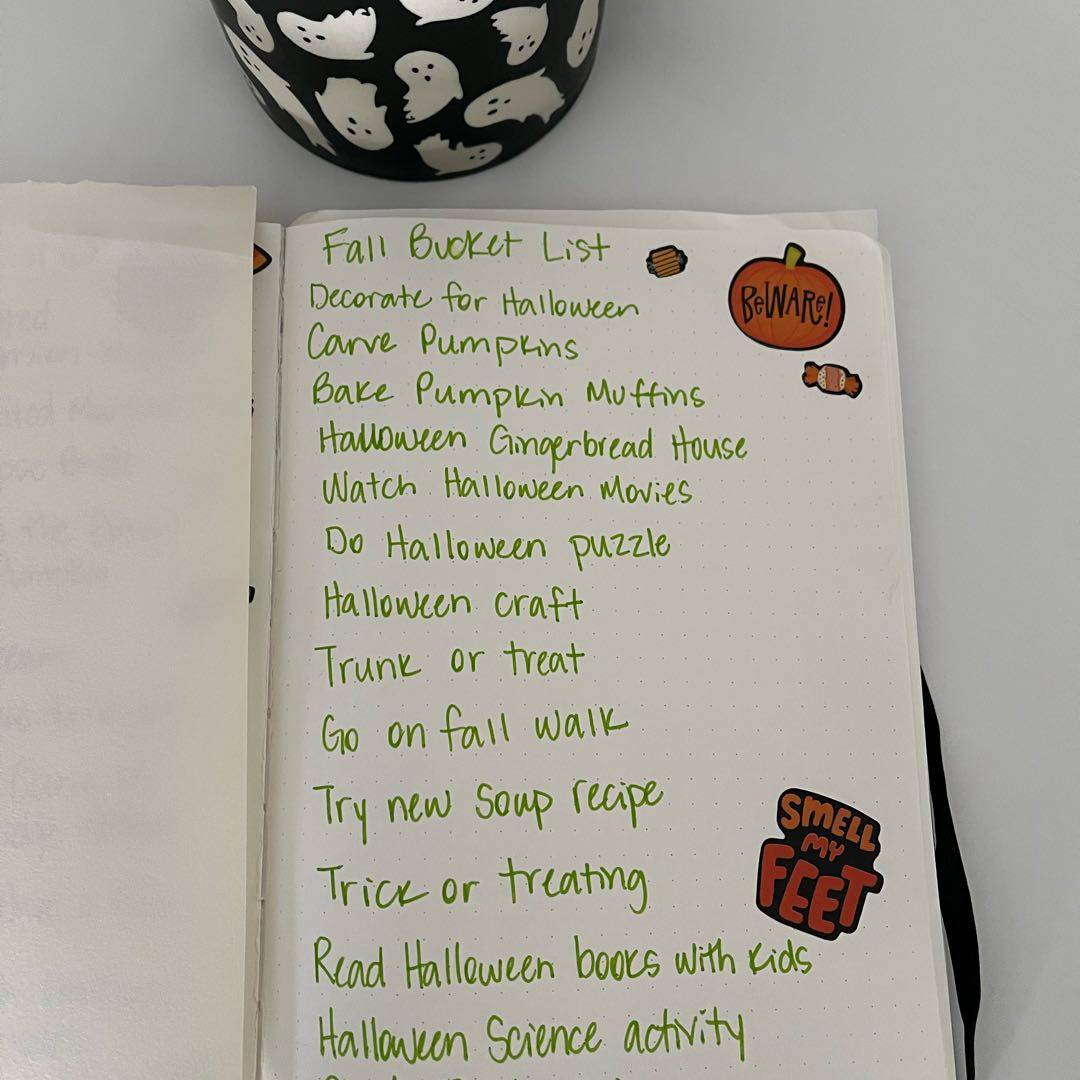 Fall Bucket List
BEWARE!
Decorate for Halloween
Carve Pumpkins
Bake Pumpkin Muffins
Halloween Gingerbread House
Watch Halloween Movies
Do Halloween puzzle
Halloween craft
Trunk or treat
Go on fall walk
Try new soup recipe
SMELL
MY
FEET
Trick or treating
Read Halloween books with kids
Halloween Science activity